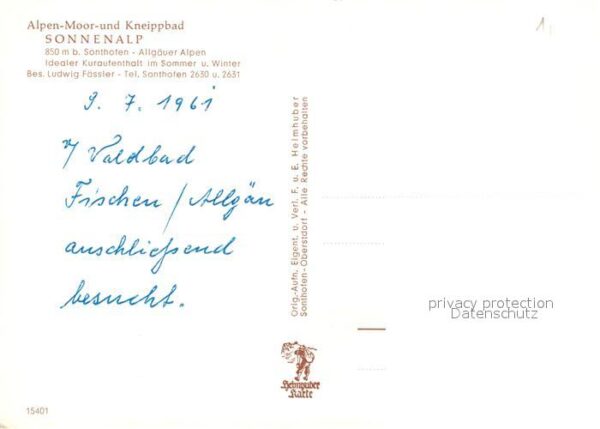 Alpen-Moor-und Kneippbad
SONNENALP
850 m b. Sonthofen - Allgäuer Alpen
Idealer Kuraufenthalt im Sommer u. Winter
Bes. Ludwig Fässler - Tel. Sonthofen 2630 u. 2631
9. 7. 1961
Waldbad
Fischen / Allgäu
anschließend
besucht.
Orig.-Aufn. Eigent. u. Verl. F. u. E. Heimhuber
Sonthofen-Oberstdorf - Alle Rechte vorbehalten
privacy protection
Datenschutz
Heimhuber
Karte
15401
1.